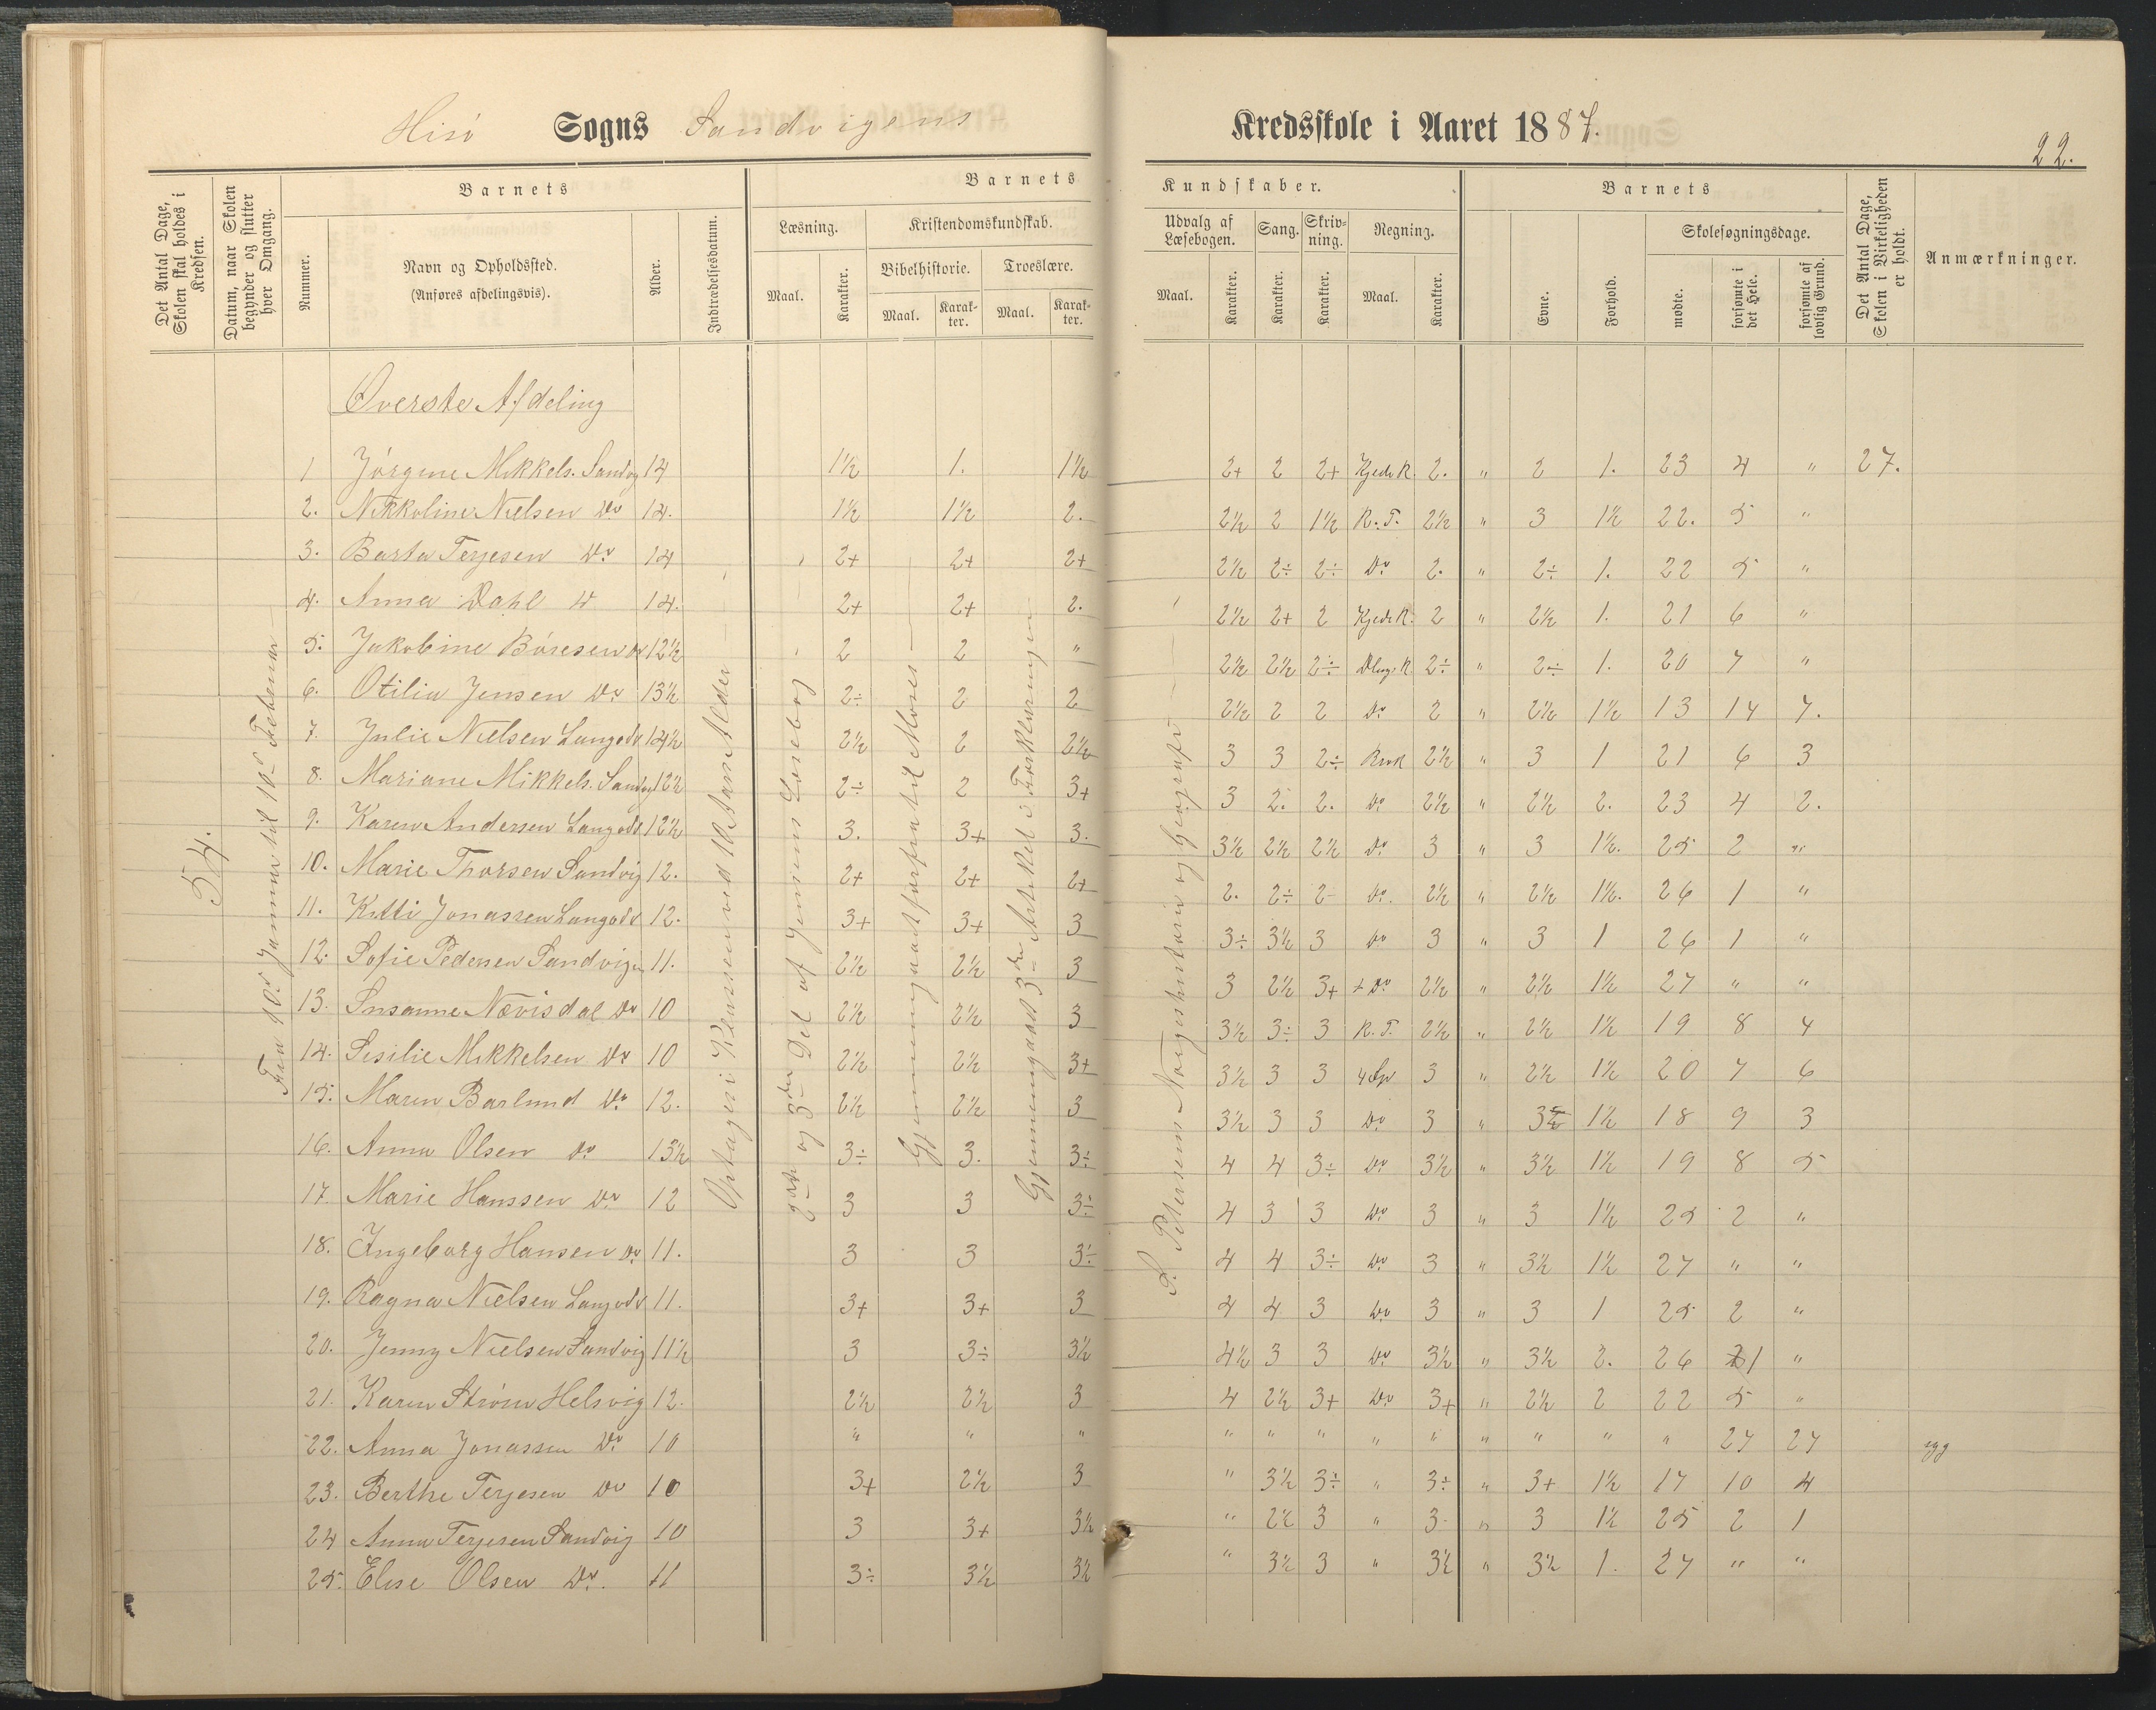 Hisö Sogns Sandvigens Kredsskole i Aaret 1887.
22.
Det Antal Dage, Skolen skal holdes i Kredsen.
Datum, naar Skolen begynder og slutter hver Omgang.
Barnets
Nummer.
Navn og Opholdssted.
(Anføres afdelingsvis).
Alder.
Indtrædelsesdatum.
Barnets
Læsning.
Maal.
Karakter.
Kristendomskundskab.
Bibelhistorie.
Maal.
Karakter.
Troeslære.
Maal.
Karakter.
Kundskaber.
Udvalg af Læsebogen.
Maal.
Karakter.
Sang.
Karakter.
Skrivning.
Karakter.
Regning.
Maal.
Karakter.
Barnets
Evne.
Forhold.
Skolesøgningsdage.
mødte.
forsømte i det Hele.
forsømte af lovlig Grund.
Det Antal Dage, Skolen i Virkeligheden er holdt.
Anmærkninger.
54.
Fra 10d Januar til 10d Februar
Optages i Klassen ved 10 Aars Alder
2det og 3die Del af Jensens Læsebog
Gjennemgaaet forfra til Moses
Gjennemgaaet 3die Artikel i Forklaringen
S. Petersens Norgeshistorie og Geografi
Øverste Afdeling
1 Jörgine Mikkels. Sandvg 14 1½ 1. 1½ 2+ 2 2+ Kjede R. 2. " 2 1. 23 4 " 27.
2. Nikkoline Nielsen Do 14. 1½ 1½ 2. 2½ 2 1½ R. T. 2½ " 3 1½ 22. 5 "
3. Berta Terjesen Do 14 2+ 2+ 2+ 2½ 2÷ 2÷ Do 2. " 2÷ 1. 22 5 "
4. Anna Dahl Do 14. 2+ 2+ 2. 2½ 2+ 2 Kjede R. 2 " 2½ 1. 21 6 "
5. Jakobine Böresen Do 12½ 2 2 " 2½ 2½ 2÷ 2÷ " 2÷ 1. 20 7 "
6. Otilia Jensen Do 13½ 2÷ 2 2 2½ 2 2 Do 2 " 2½ 1½ 13 14 7.
7. Julie Nielsen Langodd 14½ 2½ 2 2½ 3 3 2÷ Brøk 2½ " 3 1 21 6 3
8. Mariane Mikkels. Sandvg 12½ 2÷ 2 3+ 3 2. 2. Do 2½ " 2½ 2. 23 4 2.
9. Karen Andersen Langodd 12½ 3. 3+ 3. 3½ 2½ 2½ Do 3 " 3 1½. 25 2 "
10. Marie Thorsen Sandvig 12. 2+ 2+ 2+ 2. 2÷ 2- Do. 2½ " 2½ 1½. 26 1 "
11. Kitti Jonassen Langodd 12. 3+ 3+ 3 3÷ 3½ 3 Do 3 " 3 1 26 1 "
12. Sofie Pedersen Sandvigen 11. 2½ 2½ 3 3 2½ 3+ + Do 2½ " 2½ 1½ 27 " "
13. Susanne Nævisdal Do 10 2½ 2½ 3 3½ 3÷ 3 R. T. 2½ " 2½ 1½ 19 8 4
14. Sesilie Mikkelsen Do 10 2½ 2½ 3+ 3½ 3 3 4 Sp 3 " 2½ 1½ 20 7 6
15. Maren Barlund Do 12. 2½ 2½ 3 3½ 3 3 Do 3 " 1½ 18 9 3
16. Anna Olsen Do 13½ 3÷ 3. 3÷ 4 4 3÷ Do 3½ " 3½ 1½ 19 8 5
17. Marie Hanssen Do 12 3 3 3÷ 4 3 3 Do 3 " 3 1½ 25 2 "
18. Ingeborg Hansen Do 11. 3 3 3÷ 4 4 3÷ Do 3 " 3½ 1½ 27 " "
19. Ragna Nielsen Langodd 11. 3+ 3+ 3 4 4 3 Do 3 " 3 1 25 2 "
20. Jenny Nielsen Sandvig 11½ 3 3÷ 3½ 4½ 3 3 Do 3½ " 3½ 2. 26 1 "
21. Karen Ström Helsvig 12. 2½ 2½ 3 4 2½ 3+ Do 3+ " 2½ 2 22 5 "
22. Anna Jonassen Do 10 " " " " " " " " " " " " 27 27 syg
23. Berthe Terjesen Do 10 3+ 2½ 3 " 3½ 3÷ " 3÷ " 3+ 1½ 17 10 4
24 Anna Terjesen Sandvig 10 3 3+ 3½ " 2½ 3 " 3- " 3 1½ 25 2 1
25. Elise Olsen Do. 11 3÷ 3½ 3½ " 3½ 3 " 3½ " 3½ 1. 27 " "